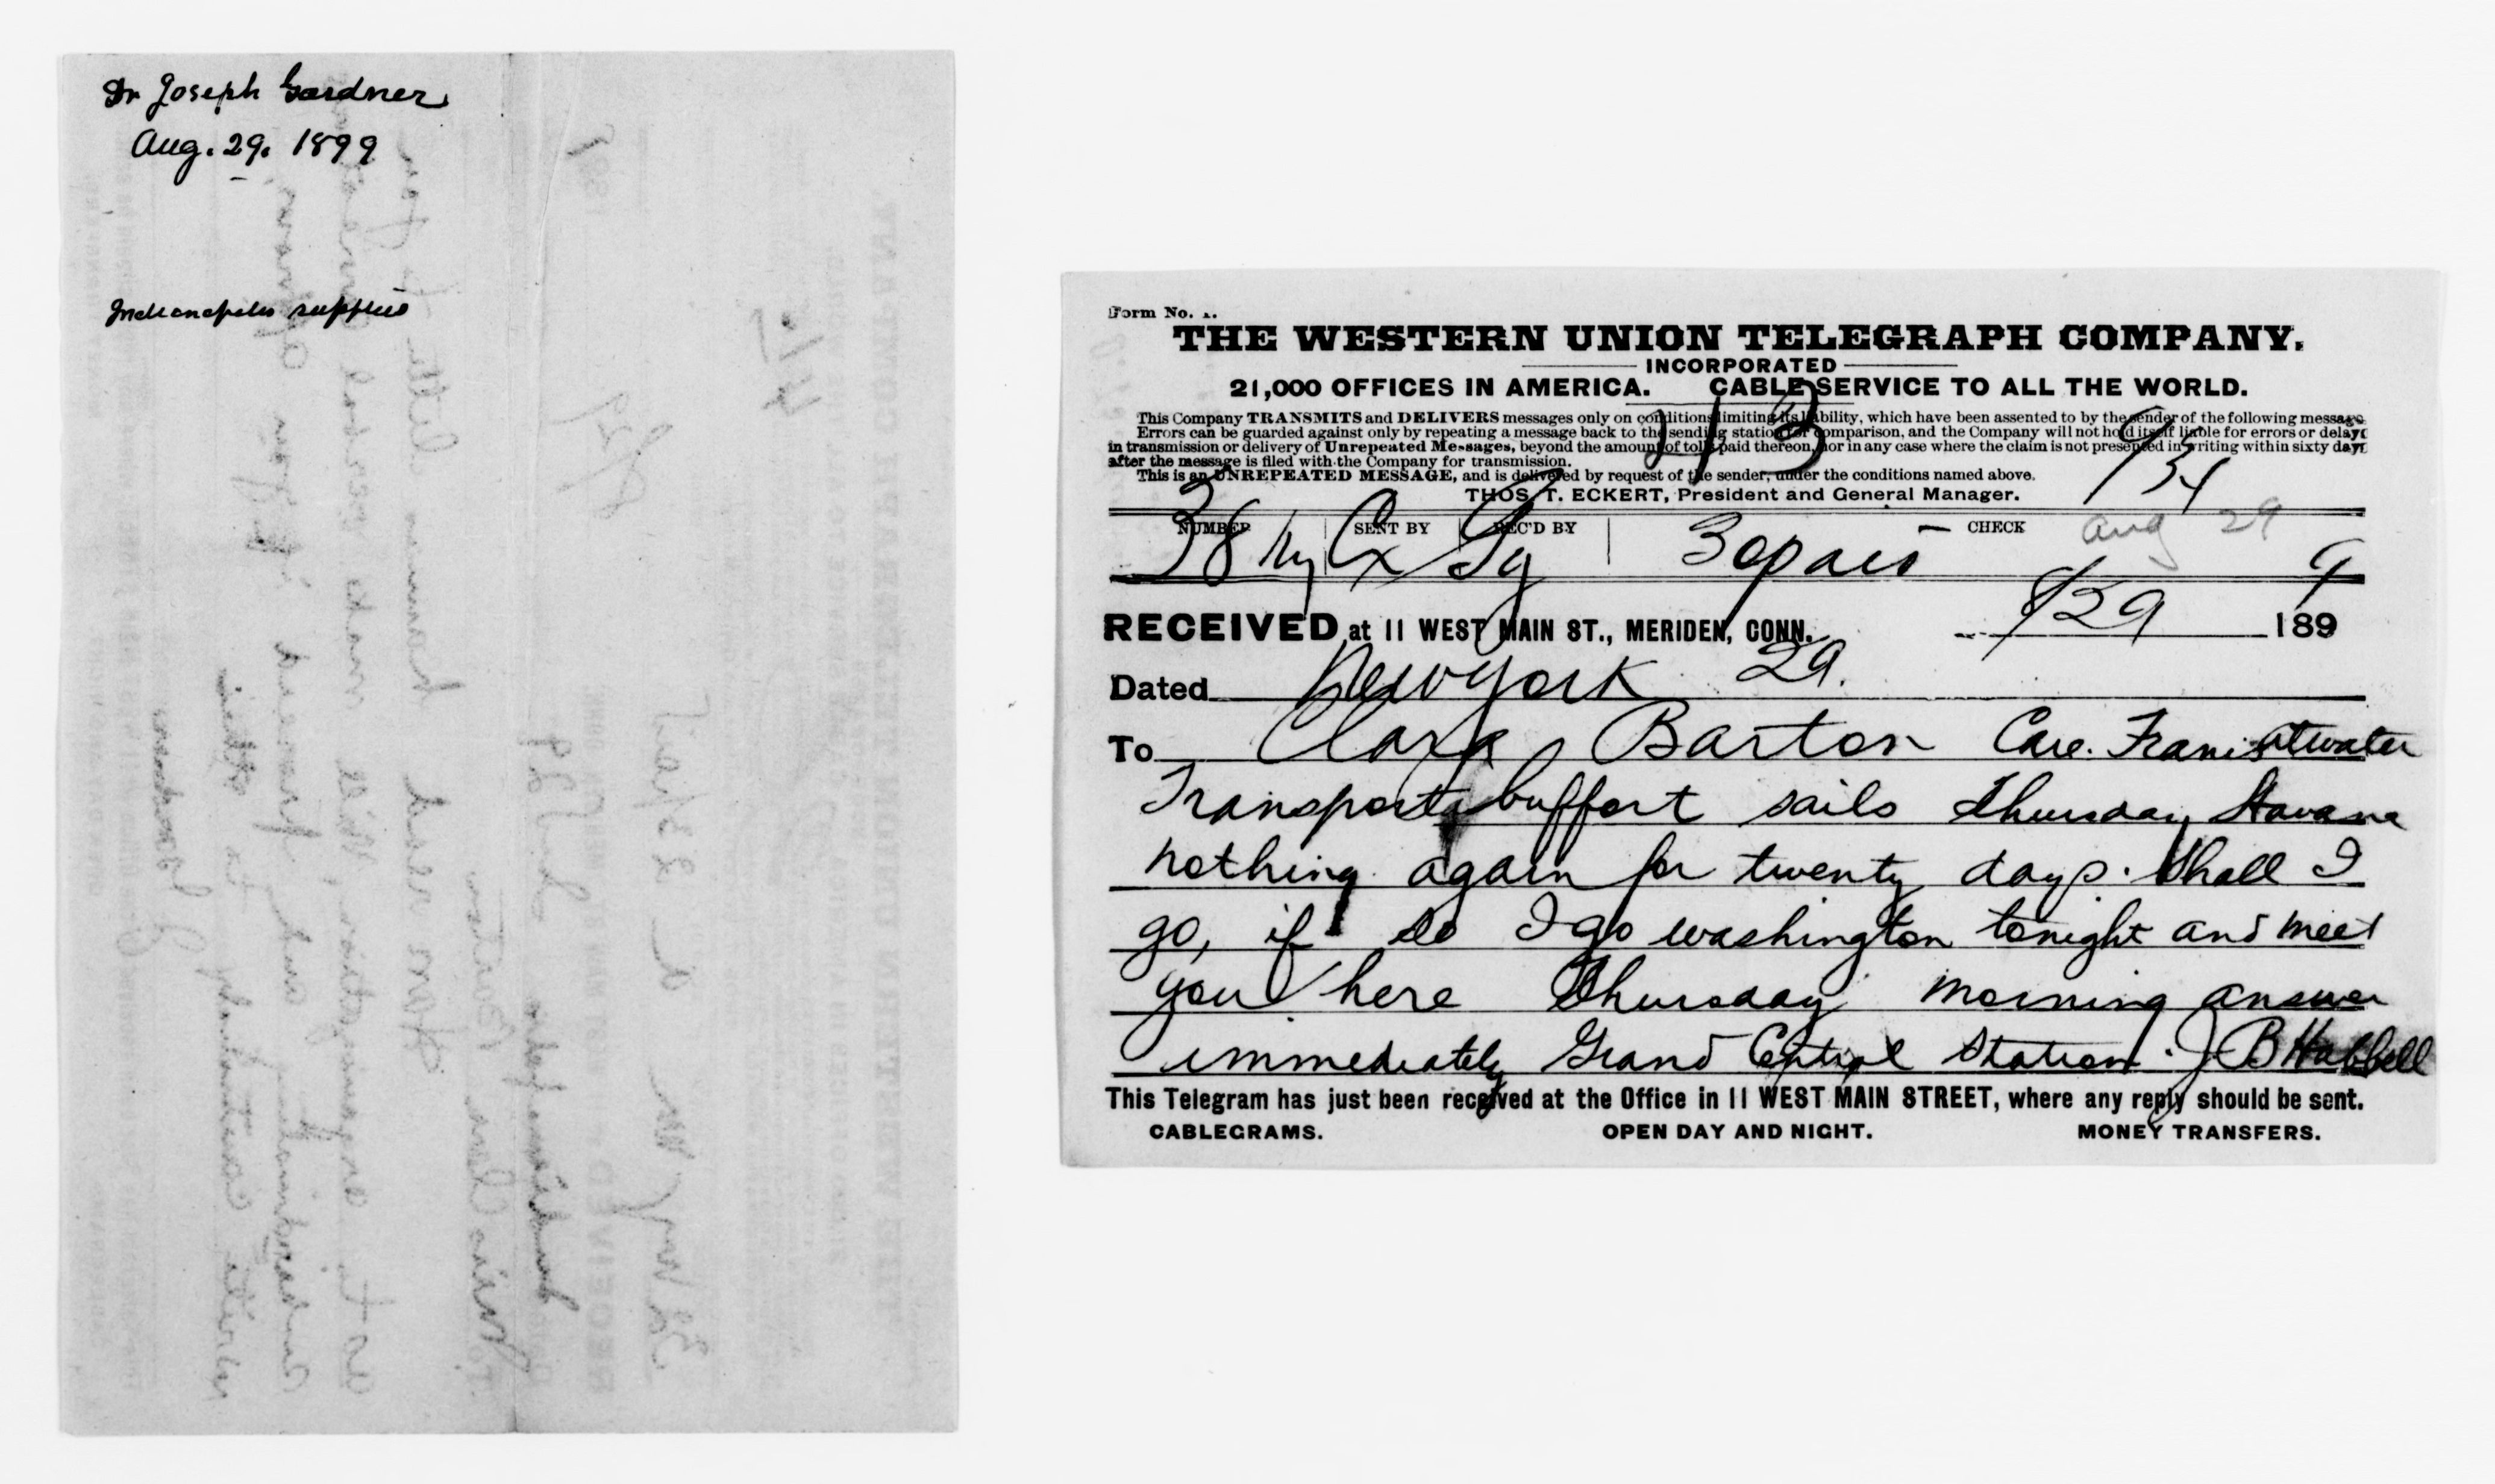 Dr Joseph Gardner
Aug. 29. 1899
Indianapolis supplies
Form No. 1.
THE WESTERN UNION TELEGRAPH COMPANY.
INCORPORATED
21,000 OFFICES IN AMERICA. CABLE SERVICE TO ALL THE WORLD.
This Company TRANSMITS and DELIVERS messages only on conditions limiting its liability, which have been assented to by the sender of the following message.
Errors can be guarded against only by repeating a message back to the sending station for comparison, and the Company will not hold itself liable for errors or delays
in transmission or delivery of Unrepeated Messages, beyond the amount of tolls paid thereon, nor in any case where the claim is not presented in writing within sixty days
after the message is filed with the Company for transmission.
This is an UNREPEATED MESSAGE, and is delivered by request of the sender, under the conditions named above.
THOS. T. ECKERT, President and General Manager.
43
NUMBER SENT BY REC'D BY CHECK
38 Ny Cx Gy 30 paid Aug 29
RECEIVED at 11 WEST MAIN ST., MERIDEN, CONN. 8/29 1899
Dated New York 29.
To Clara Barton Care. Francis Atwater
Transport buffort sails Thursday Havana
nothing again for twenty days. Shall I
go, if so I go washington tonight and meet
you here Thursday morning answer
immediately Grand Central Station. J. B Hubbell
This Telegram has just been received at the Office in 11 WEST MAIN STREET, where any reply should be sent.
CABLEGRAMS. OPEN DAY AND NIGHT. MONEY TRANSFERS.